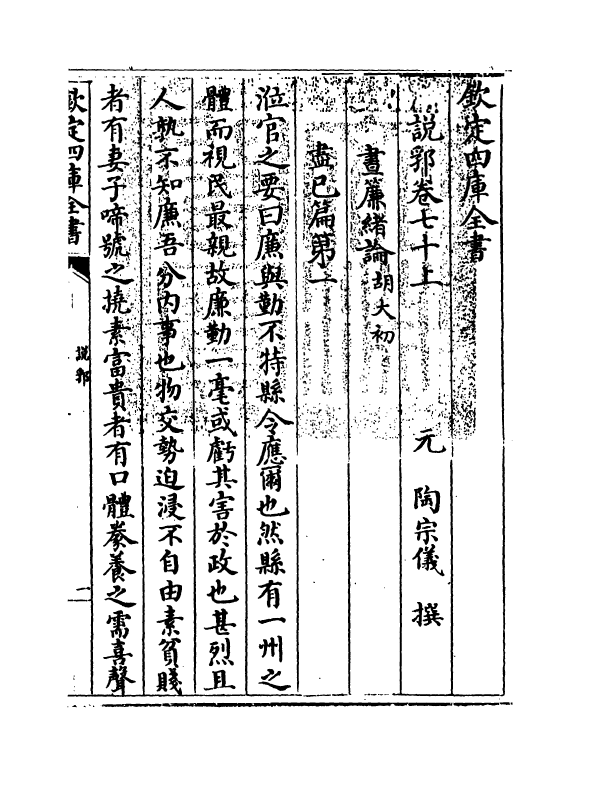 欽定四庫全書
說郛卷七十上　元　陶宗儀　撰
晝簾緒論胡大初
盡已篇第一
涖官之要曰廉與勤不特縣令應爾也然縣有一州之
體而視民最親故廉勤一毫或虧其害於政也甚烈且
人孰不知廉吾分內事也物交勢迫浸不自由素貧賤
者有妻子啼號之撓素富貴者有口體豢養之需喜聲
欽定四庫全書
說郛
一